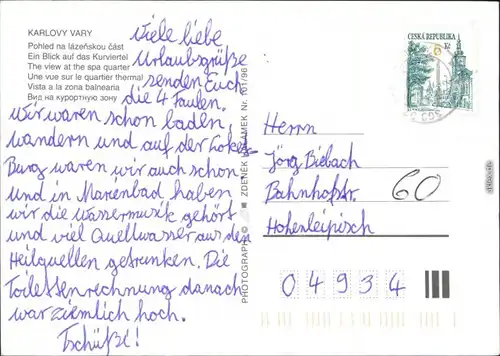 KARLOVY VARY
Pohled na lázeňskou část
Ein Blick auf das Kurviertel
The view at the spa quarter
Une vue sur le quartier thermal
Vista a la zona balnearia
Вид на курортную зону
Viele liebe
Urlaubsgrüße
senden Euch
die 4 Faulen.
Wir waren schon baden,
wandern und auf der Loket-
Burg waren wir auch schon
und in Marienbad haben
wir die Wassermusik gehört
und viel Quellwasser aus den
Heilquellen getrunken. Die
Toilettenrechnung danach
war ziemlich hoch.
Tschüße!
PHOTOGRAPH © ZDENĚK Nr. 701/96
ČESKÁ REPUBLIKA
6 Kč
Herrn
Jörg Biebach
Bahnhofstr. 60
Hohenleipisch
04934